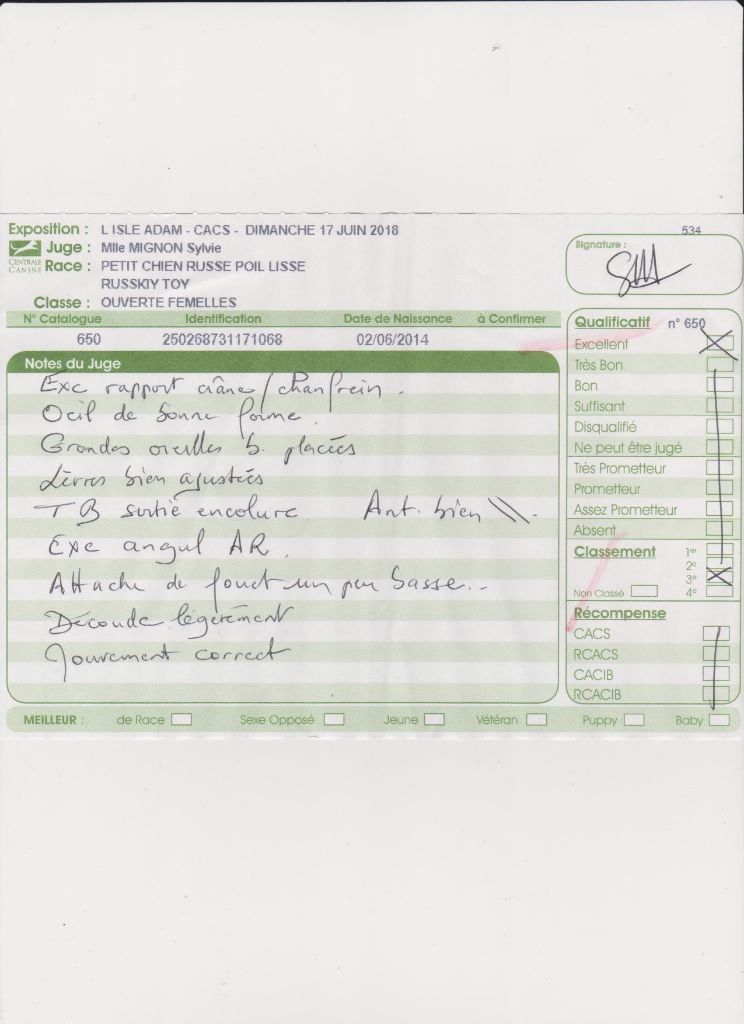 534
Exposition : L ISLE ADAM - CACS - DIMANCHE 17 JUIN 2018
Juge : Mlle MIGNON Sylvie
CENTRALE CANINE
Race : PETIT CHIEN RUSSE POIL LISSE
RUSSKIY TOY
Classe : OUVERTE FEMELLES
Signature :
N° Catalogue Identification Date de Naissance à Confirmer
650 250268731171068 02/06/2014
Notes du Juge
Exc rapport crâne/chanfrein.
Oeil de bonne forme.
Grandes oreilles b. placées
Lèvres bien ajustées
TB sortie encolure Ant. bien \\.
Exc angul AR.
Attache de fouet un peu basse..
Découde légèrement
Mouvement correct
Qualificatif n° 650
Excellent
Très Bon
Bon
Suffisant
Disqualifié
Ne peut être jugé
Très Prometteur
Prometteur
Assez Prometteur
Absent
Classement 1er
2e
3e
Non Classé 4e
Récompense
CACS
RCACS
CACIB
RCACIB
MEILLEUR : de Race Sexe Opposé Jeune Vétéran Puppy Baby